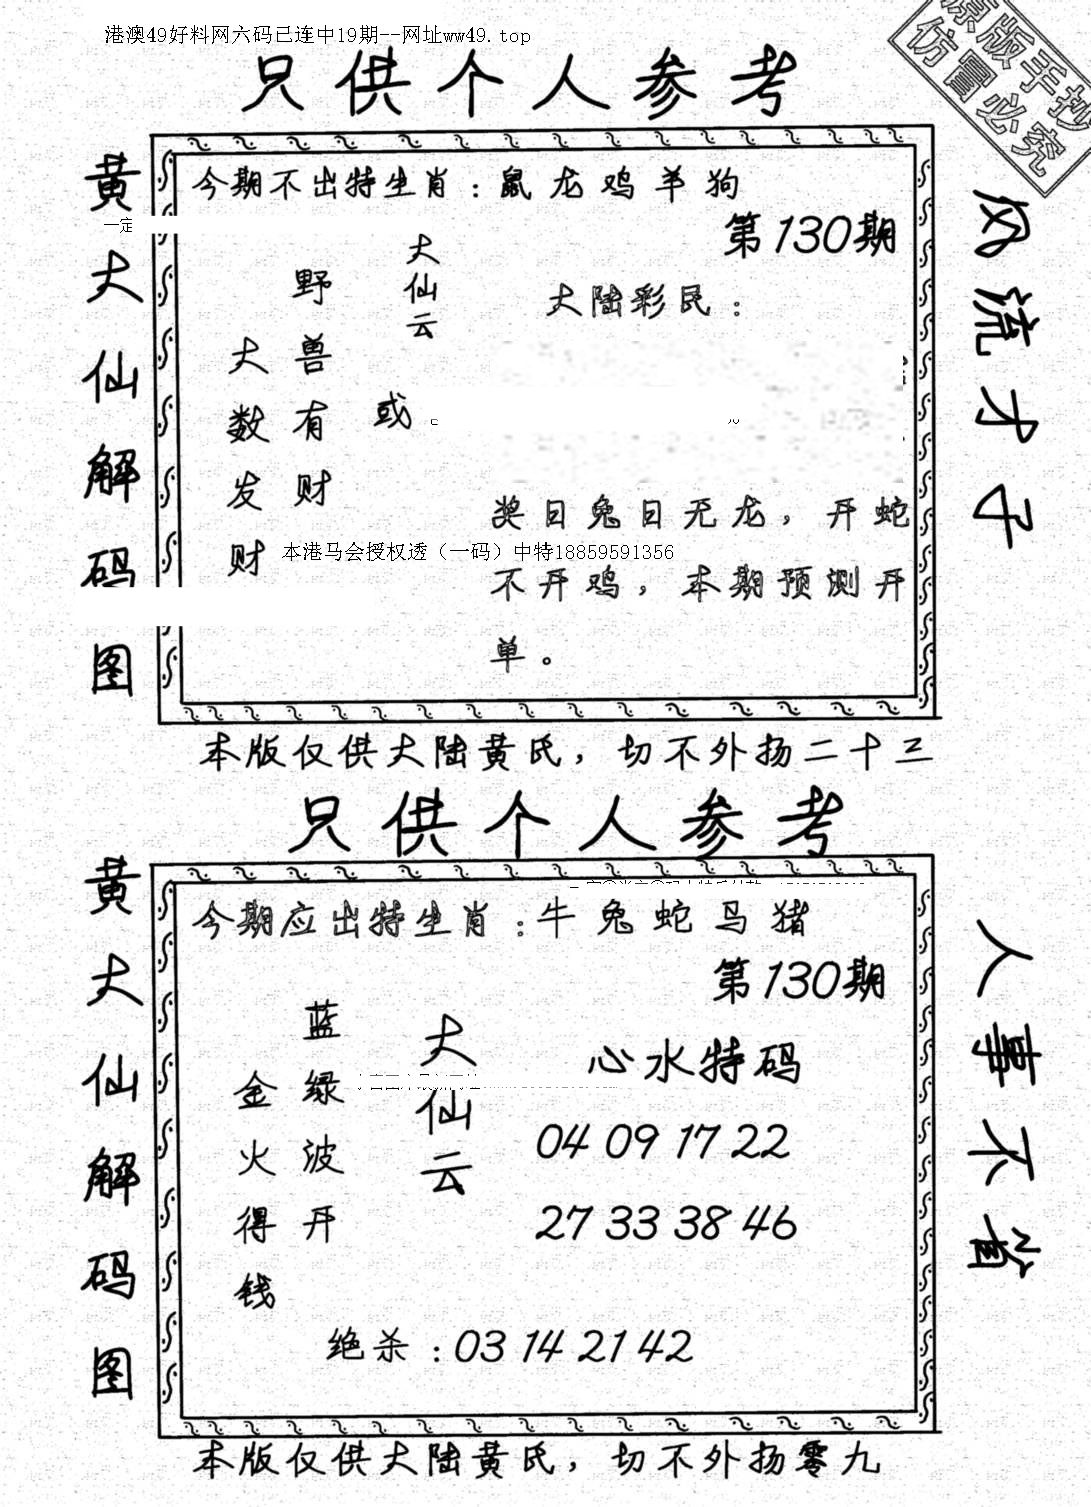 港澳49好料网六码已连中19期--网址ww49.top
只供个人参考
原版手抄
仿冒必究
黄大仙解码图
一定
今期不出特生肖：鼠龙鸡羊狗
第130期
大仙云
野兽有财
大数发财
或
大陆彩民：
奖日兔日无龙，开蛇
不开鸡，本期预测开
单。
本港马会授权透（一码）中特18859591356
风流才子
本版仅供大陆黄氏，切不外扬二十三
只供个人参考
黄大仙解码图
今期应出特生肖：牛兔蛇马猪
第130期
大仙云
蓝绿波开
金火得钱
心水特码
04 09 17 22
27 33 38 46
绝杀：03 14 21 42
人事不省
本版仅供大陆黄氏，切不外扬零九